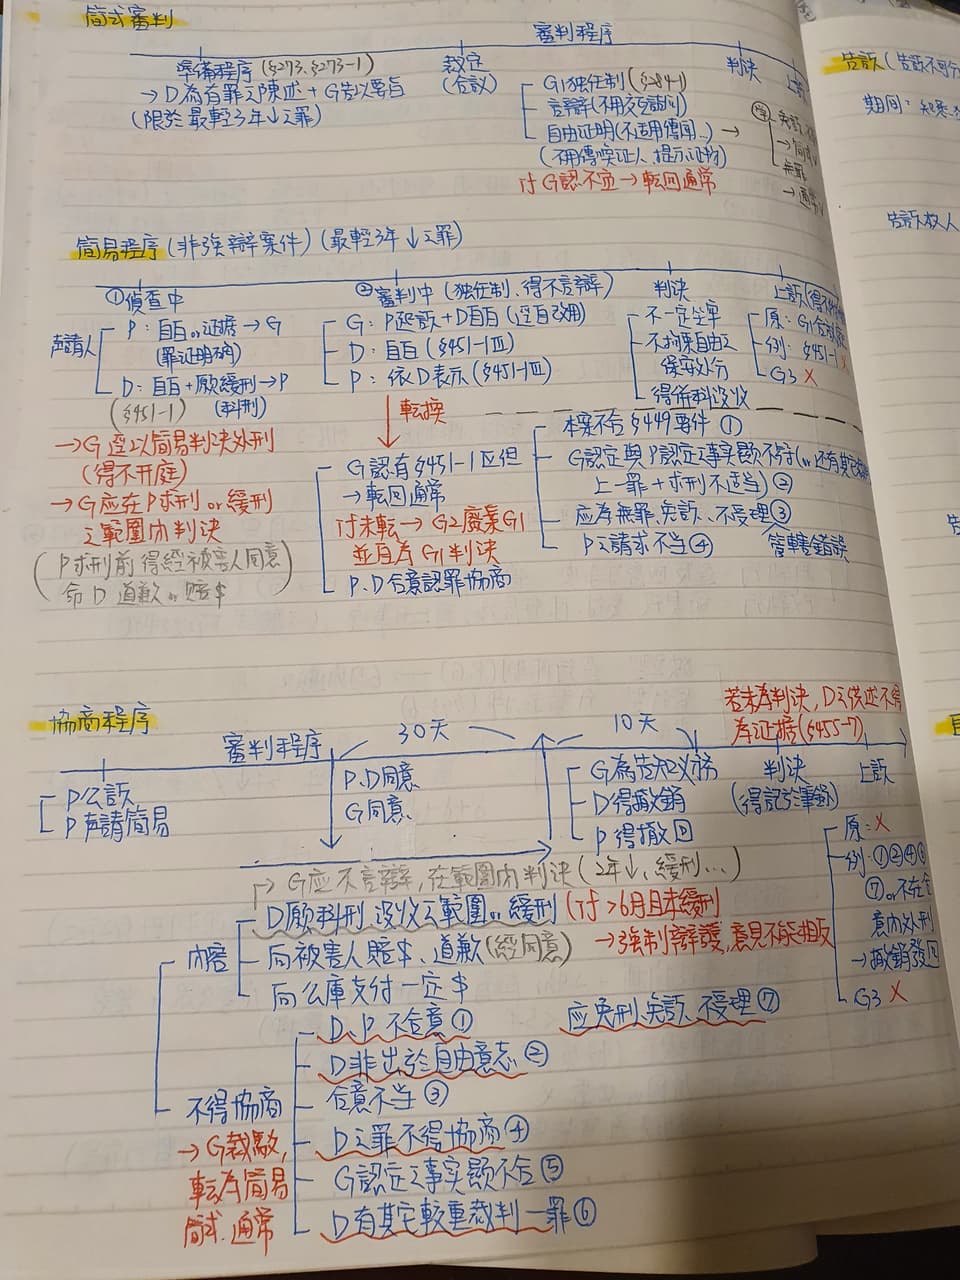 簡式審判
審判程序
準備程序 (§273、§273-1)
→ D為有罪之陳述 + G告以要旨
(限於最輕3年↓之罪)
裁定
(合議)
G1獨任制 (§284-1)
言辯 (不用交互詰問)
自由証明 (不适用傳聞..) →
(不用傳喚证人、提示证物)
if G認不宜 → 転回通常
判決
上訴
学
無罪
簡易程序 (非強辯案件) (最輕3年↓之罪)
①偵查中
声請人
P: 自白 or 证据 → G
(罪证明确)
D: 自白 + 願緩刑 → P
(§451-1) (科刑)
→ G 逕以簡易判決処刑
(得不开庭)
→ G应在P求刑 or 緩刑
之範圍內判決
(P求刑前得經被害人同意
命D道歉 or 賠$)
②審判中 (独任制、得不言辯)
G: P起訴 + D自白 (逕自改用)
D: 自白 (§451-1 III)
P: 依D表示 (§451-1 III)
転換
G認有§451-1 IV但
→ 転回通常
if未転 → G2廢棄G1
並自為G1判決
P、D合意認罪協商
判決
不一定坐牢
不拘束自由之
保安処分
得併科沒收
上訴
原: G1合議庭
例: §451-1 X
G3 X
本案不合§449要件 ①
上一罪 + 求刑不适当) ②
应為無罪、免訴、不受理 ③
管轄錯誤
P之請求不当 ④
協商程序
審判程序
30天
10天
若未為判決, D之供述不得
為证据 (§455-7)
P公訴
P声請簡易
P、D同意
G同意
G為告知义務
D得撤銷
P得撤回
判決
(得記於筆錄)
上訴
原: X
例: ①②④⑥
⑦ or 不在合
意內処刑
→ 撤銷發回
G3 X
→ G应不言辯, 在範圍內判決 (2年↓, 緩刑...)
內容
D願科刑、沒收之範圍 or 緩刑 (if >6月且未緩刑
→ 強制辯護, 意見不能相反
向被害人賠$、道歉 (經同意)
向公庫支付一定$
不得協商
→ G裁駁,
転為簡易
簡式、通常
D、P不合意 ①
应免刑、免訴、不受理 ⑦
D非出於自由意志 ②
合意不当 ③
D之罪不得協商 ④
G認定之事実顯不合 ⑤
D有其它較重裁判一罪 ⑥
告訴 (告訴不可分
期间:
告訴权人